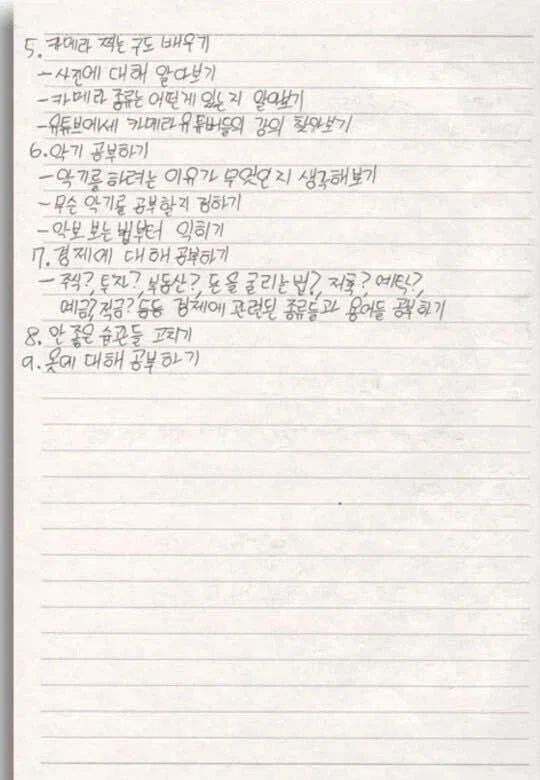 5.카메라 찍는 구도 배우기
- 사진에 대해 알아보기
- 카메라 종류는 어떤게 있는지 알아보기
- 유튜브에세 카메라 유튜버들의 강의 찾아보기
6. 악기 공부하기
- 악기를 하려는 이유가 무엇인지 생각해보기
- 무슨 악기를 공부할지 정하기
- 악보 보는 법부터 익히기
7. 경제에 대해 공부하기
- 주식?, 투자?, 부동산?, 돈을 굴리는 법?, 저축?, 예탁?,
예금?, 적금? 등등 경제에 관련된 종류들과 용어들 공부하기
8. 안 좋은 습관들 고치기
9. 옷에 대해 공부하기